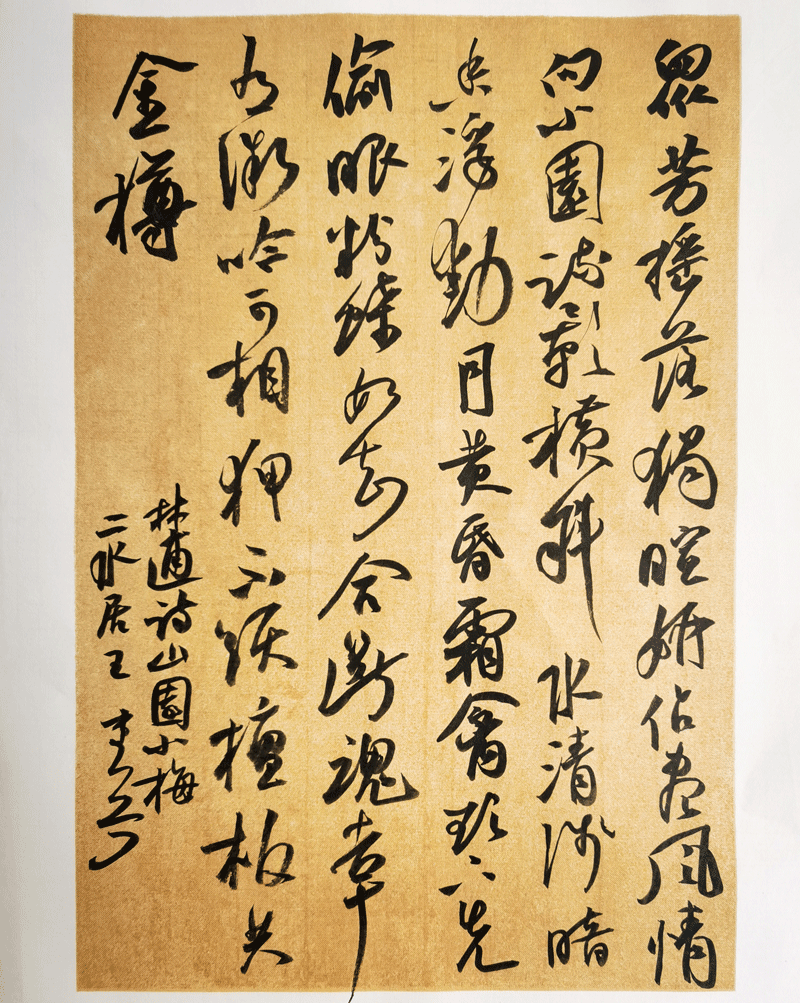 眾芳摇落獨暄妍佔盡風情
向小園疏影横斜水清淺暗
香浮動月黄昏霜禽欲下先
偷眼粉蝶如知合断魂幸
有微吟可相狎不須檀板共
金樽
林逋詩山園小梅
二水居王